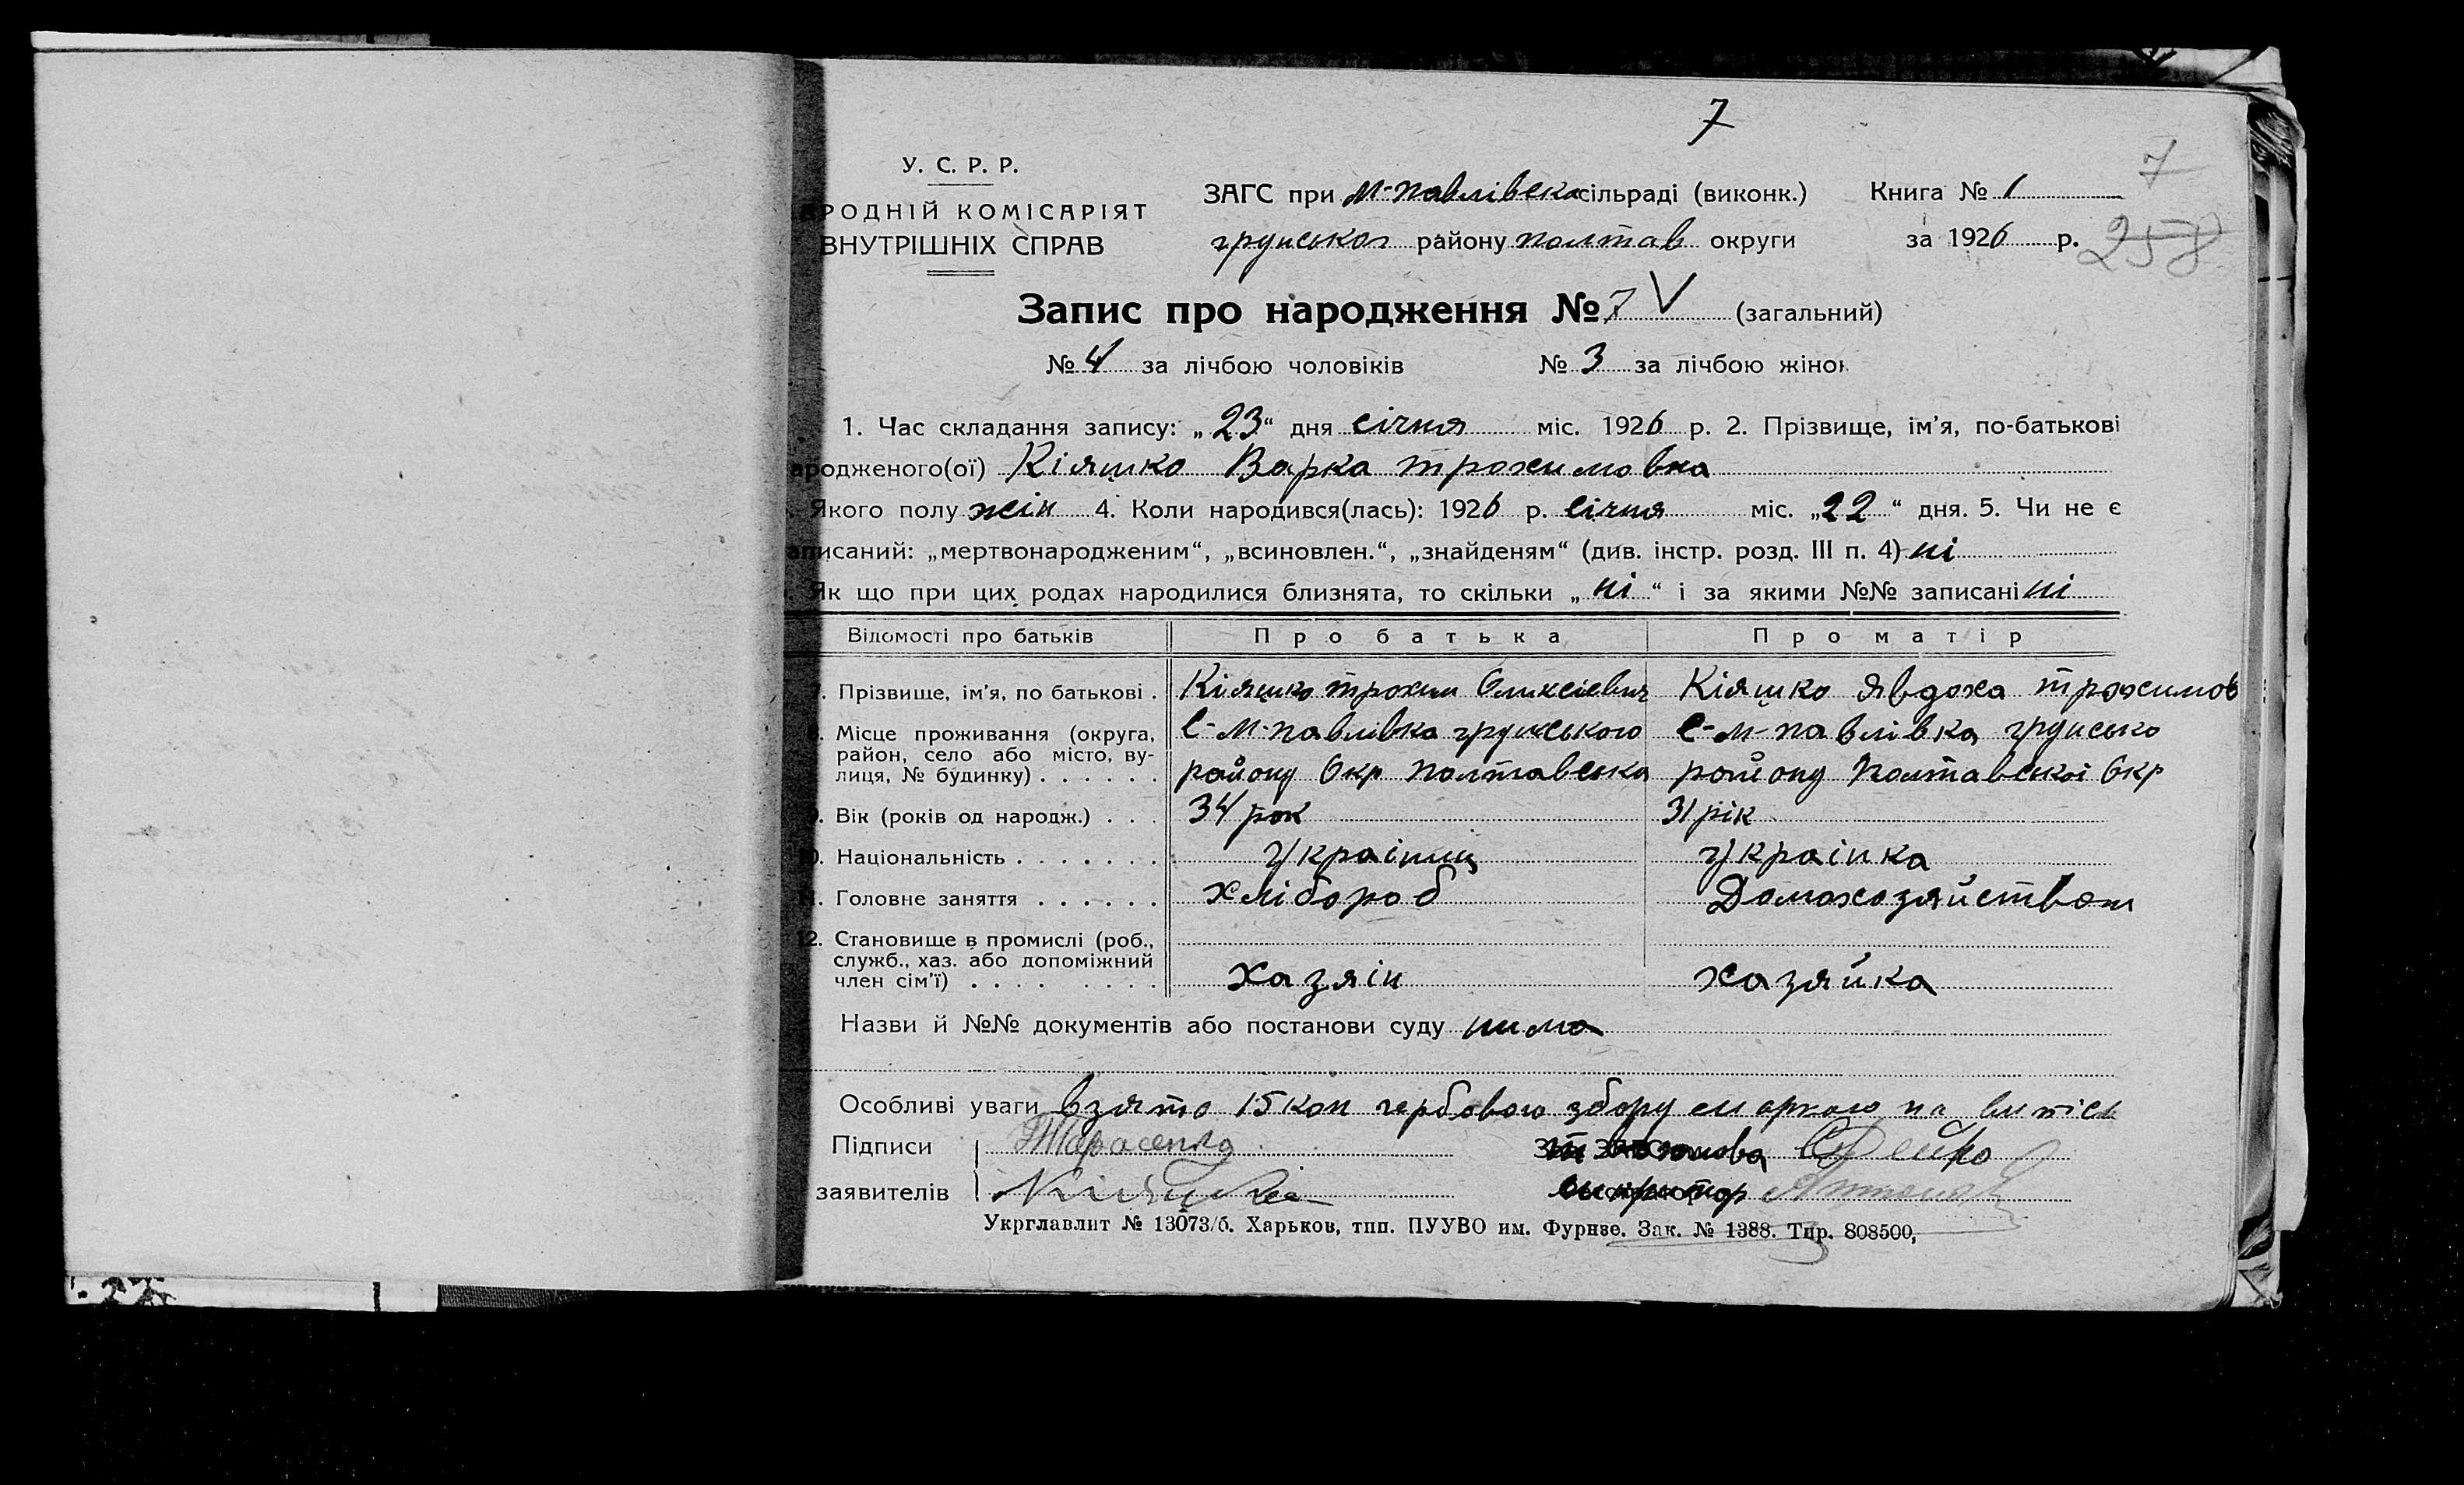 7
7
У. С. Р. Р.
РОДНІЙ КОМІСАРІЯТ
ВНУТРІШНІХ СПРАВ
ЗАГС при М-павлівска сільраді (виконк.) Книга № 1
грунської району полтав округи за 1926 р. 258
Запис про народження № 7 V (загальний)
№ 4 за лічбою чоловіків № 3 за лічбою жінок
1. Час складання запису: „23“ дня січня міс. 1926 р. 2. Прізвище, ім’я, по-батькові
ародженого(ої) Кіяшко Варка трохимовна
Якого полу жін 4. Коли народився(лась): 1926 р. січня міс. „22“ дня. 5. Чи не є
аписаний: „мертвонародженим“, „всиновлен.“, „знайденям“ (див. інстр. розд. III п. 4) ні
Як що при цих родах народилися близнята, то скільки „ні“ і за якими №№ записані ні
Відомості про батьків Про батька Про матір
7. Прізвище, ім’я, по батькові . Кіяшко трохим Оликсіевич Кіяшко Явдоха трохимов
8. Місце проживання (округа, район, село або місто, вулиця, № будинку) . . . . . . С-М-павлівка грунського С-М-павлівка грунсько
району Окр полтавська району Полтавської Окр
9. Вік (років од народж.) . . . 34 рок 31 рік
10. Національність . . . . . . . Украіниць Украінка
11. Головне заняття . . . . . . хлібороб Домохозяйством
12. Становище в промислі (роб.,
служб., хаз. або допоміжний
член сім’ї) . . . . . . . . Хазяін хазяйка
Назви й №№ документів або постанови суду нима
Особливі уваги взято 15 коп гербового збору маркою на витісь
Підписи Тарасенко голова
заявителів Кіяшко сикритар
Укрглавлит № 13073/б. Харьков, тип. ПУУВО им. Фурнзе. Зак. № 1388. Тир. 808500,